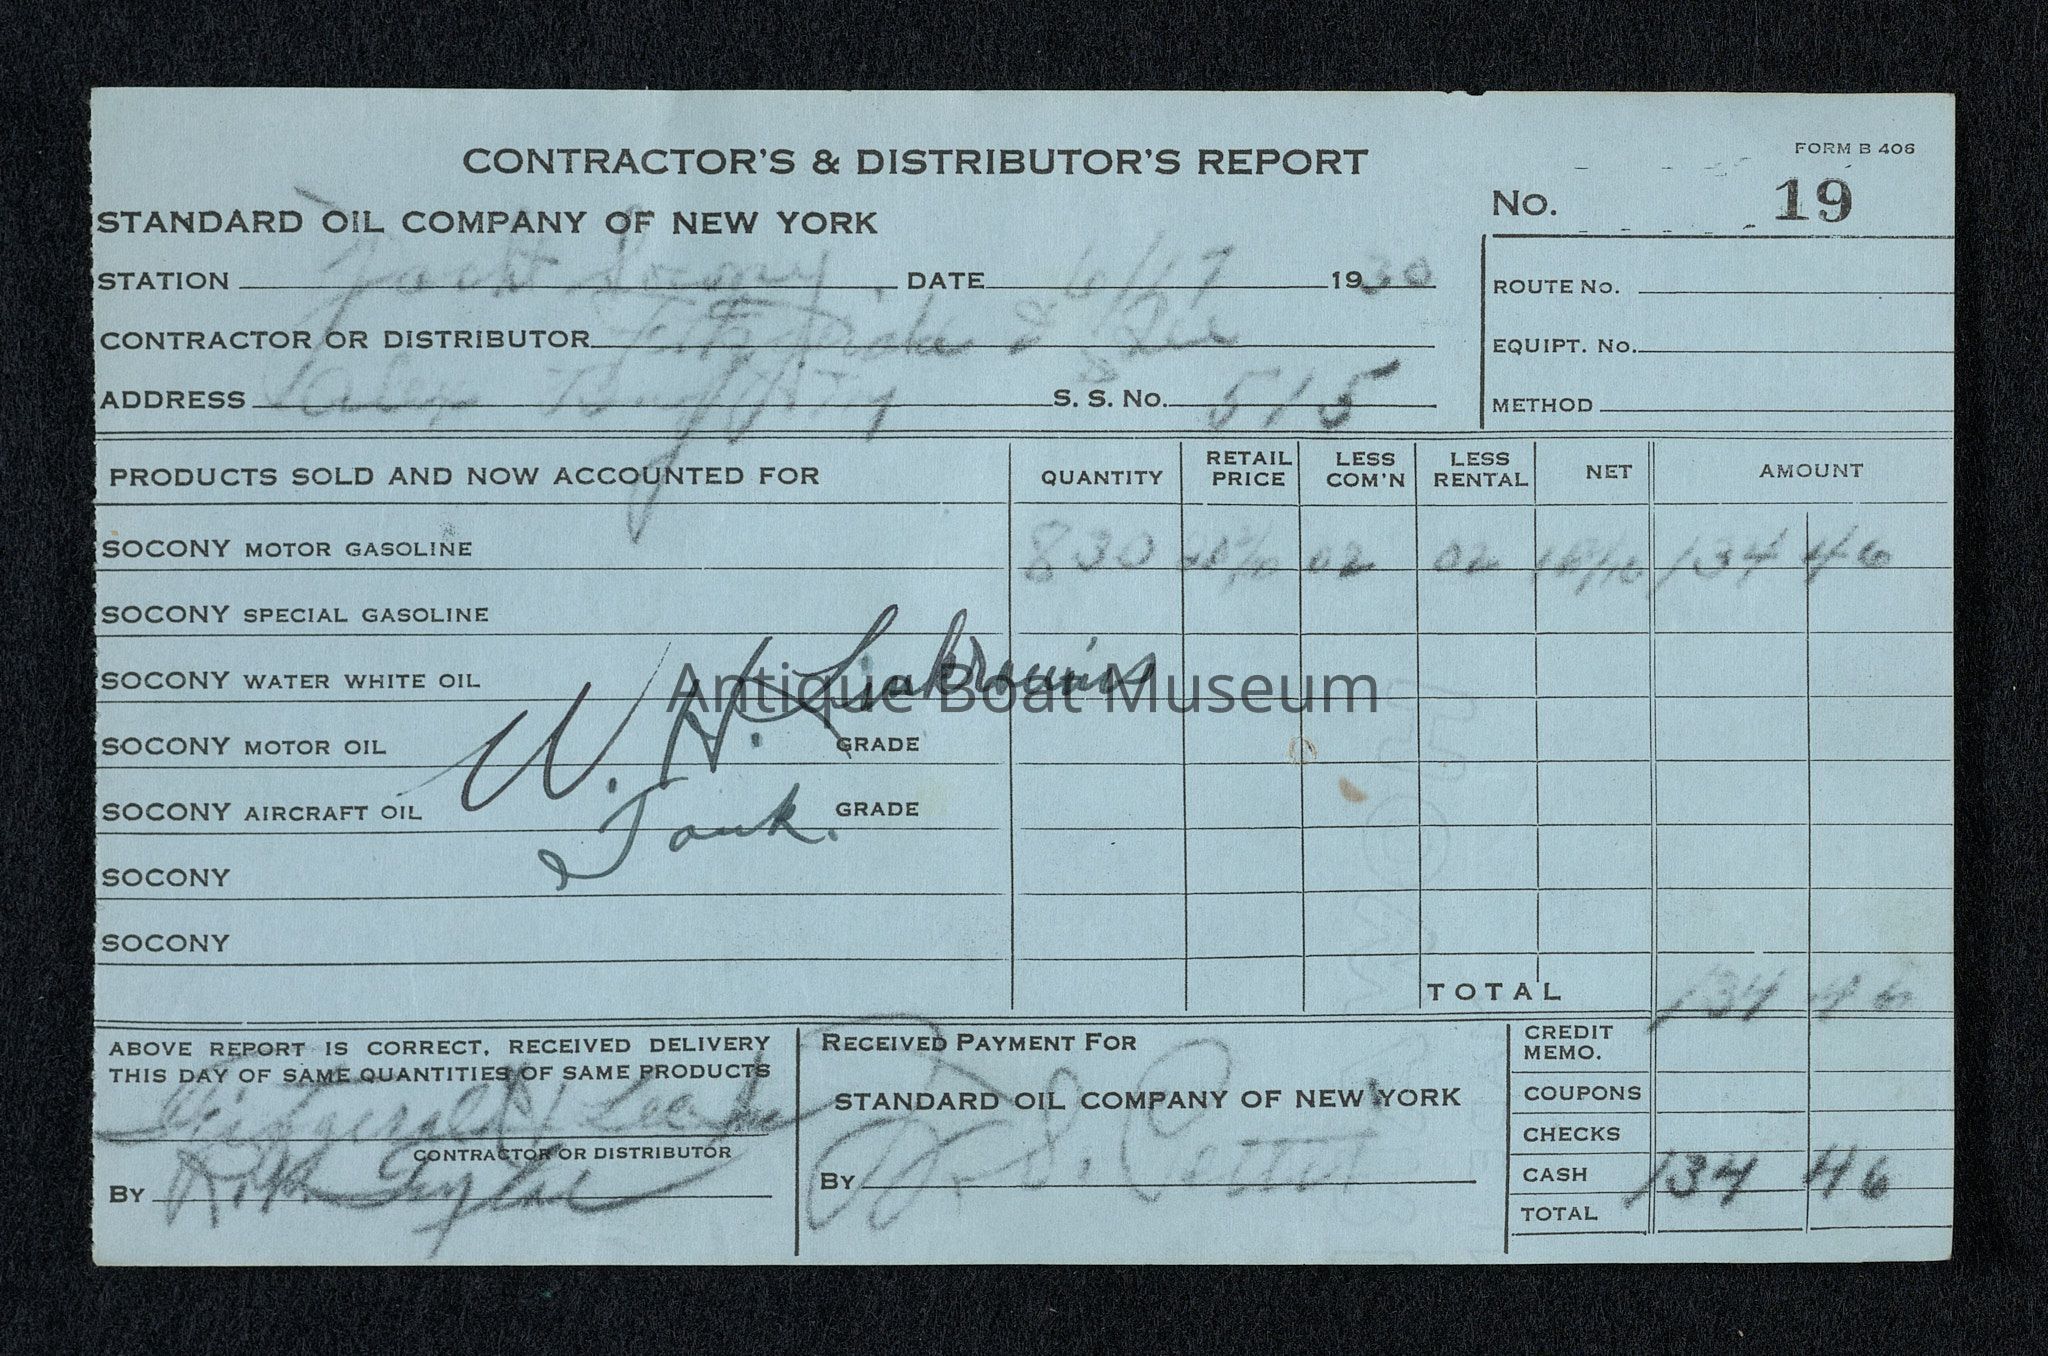 FORM B 406
CONTRACTOR'S & DISTRIBUTOR'S REPORT
No. 19
STANDARD OIL COMPANY OF NEW YORK
STATION Yacht Socony DATE 6/17 1930
ROUTE No.
CONTRACTOR OR DISTRIBUTOR Fitzgerald & Lee
EQUIPT. No.
ADDRESS Alex Bay N.Y. S. S. No. 515
METHOD
PRODUCTS SOLD AND NOW ACCOUNTED FOR QUANTITY RETAIL PRICE LESS COM'N LESS RENTAL NET AMOUNT
SOCONY MOTOR GASOLINE 830 02 02 134 46
SOCONY SPECIAL GASOLINE
SOCONY WATER WHITE OIL
W. H.
Antique Boat Museum
SOCONY MOTOR OIL GRADE
SOCONY AIRCRAFT OIL GRADE
Tank.
SOCONY
SOCONY
TOTAL 134 46
ABOVE REPORT IS CORRECT, RECEIVED DELIVERY
THIS DAY OF SAME QUANTITIES OF SAME PRODUCTS
Fitzgerald & Lee Inc
CONTRACTOR OR DISTRIBUTOR
By Ralph
RECEIVED PAYMENT FOR
STANDARD OIL COMPANY OF NEW YORK
By
CREDIT MEMO.
COUPONS
CHECKS
CASH 134 46
TOTAL